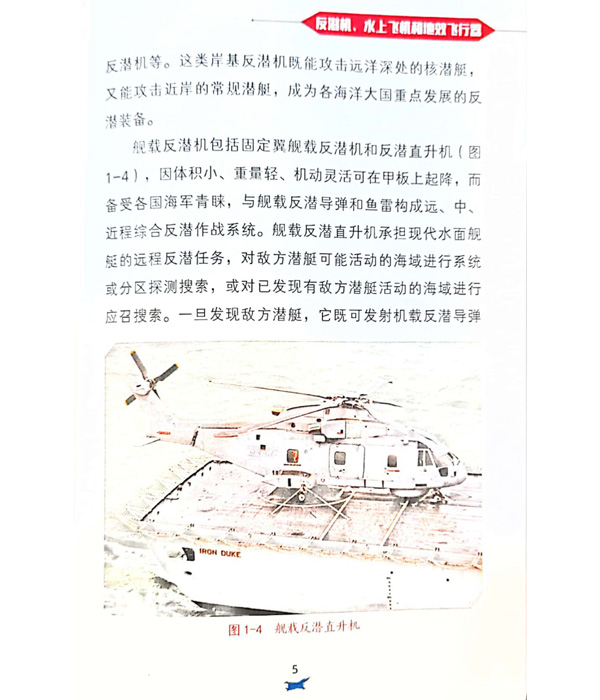 反潜机、水上飞机和地效飞行器
反潜机等。这类岸基反潜机既能攻击远洋深处的核潜艇，
又能攻击近岸的常规潜艇，成为各海洋大国重点发展的反
潜装备。
舰载反潜机包括固定翼舰载反潜机和反潜直升机（图
1-4），因体积小、重量轻、机动灵活可在甲板上起降，而
备受各国海军青睐，与舰载反潜导弹和鱼雷构成远、中、
近程综合反潜作战系统。舰载反潜直升机承担现代水面舰
艇的远程反潜任务，对敌方潜艇可能活动的海域进行系统
或分区探测搜索，或对已发现有敌方潜艇活动的海域进行
应召搜索。一旦发现敌方潜艇，它既可发射机载反潜导弹
IRON DUKE
图1-4 舰载反潜直升机
5